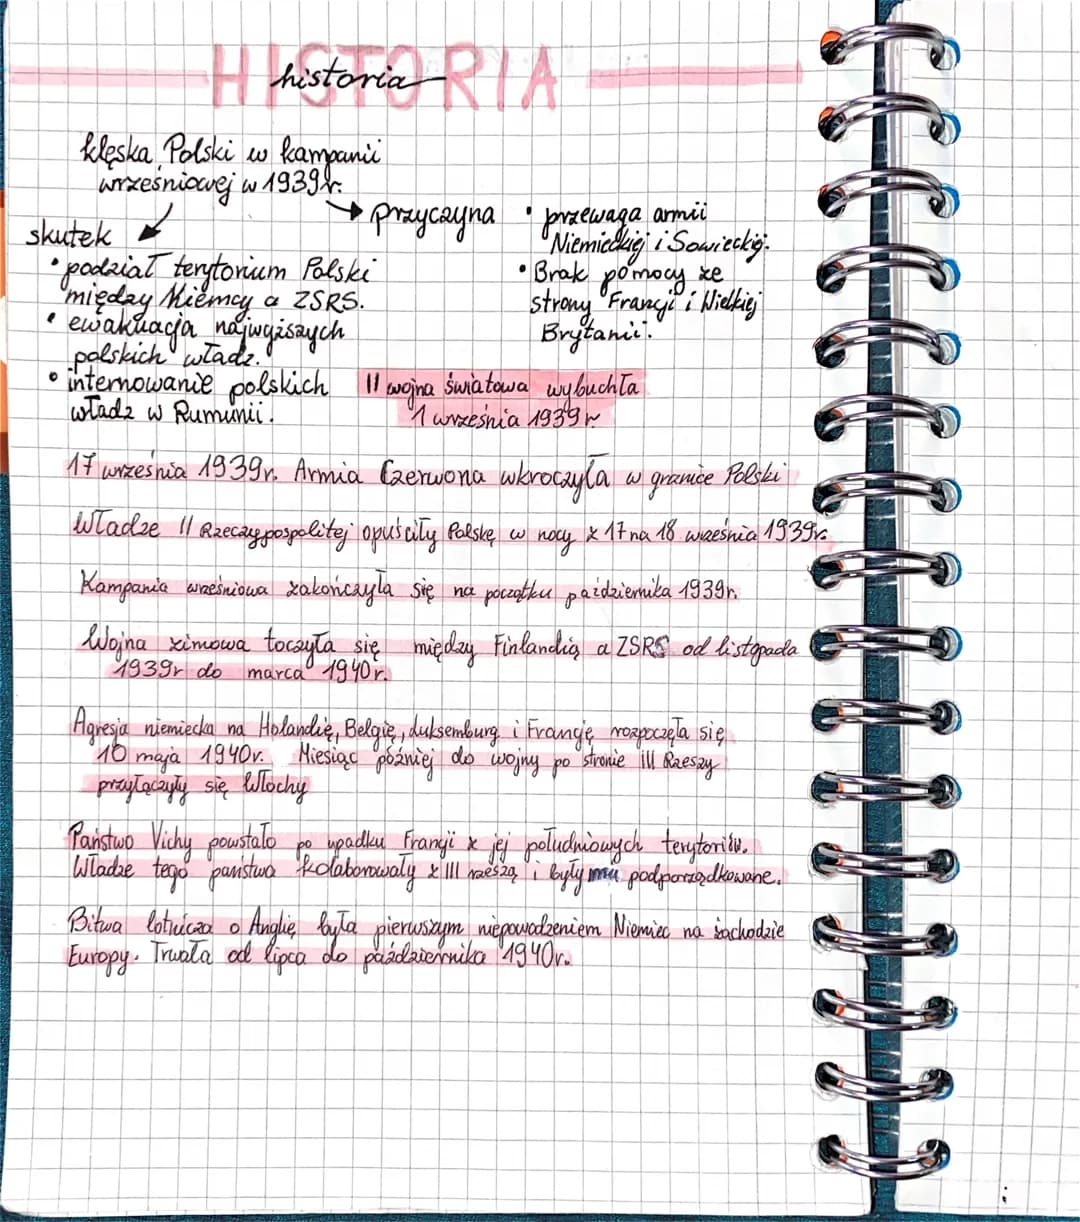 HISTORIA
historia
klęska Polski w kampanii
wrześniowej w 1939r.
przyczyna
• przewaga armii
Niemieckiej i Sowieckiej.
• Brak pomocy ze
strony Francji i Wielkiej
Brytanii.
skutek
• podział terytorium Polski
między Niemcy a ZSRS.
• ewakuacja najwyższych
polskich władz.
• internowanie polskich
władz w Rumunii.
II wojna światowa wybuchła
1 września 1939r
17 września 1939r. Armia Czerwona wkroczyła w granice Polski
Władze II Rzeczypospolitej opuściły Polskę w nocy z 17 na 18 września 1939r.
Kampania wrześniowa zakończyła się na początku października 1939r.
Wojna zimowa toczyła się między Finlandią a ZSRS od listopada
1939r do marca 1940r.
Agresja niemiecka na Holandię, Belgię, Luksemburg i Francję rozpoczęła się
10 maja 1940r. Miesiąc później do wojny po stronie III Rzeszy
przyłączyły się Włochy
Państwo Vichy powstało po upadku Francji z jej południowych terytoriów.
Władze tego państwa kolaborowały z III rzeszą i były mu podporządkowane.
Bitwa lotnicza o Anglię była pierwszym niepowodzeniem Niemiec na zachodzie
Europy. Trwała od lipca do października 1940r.